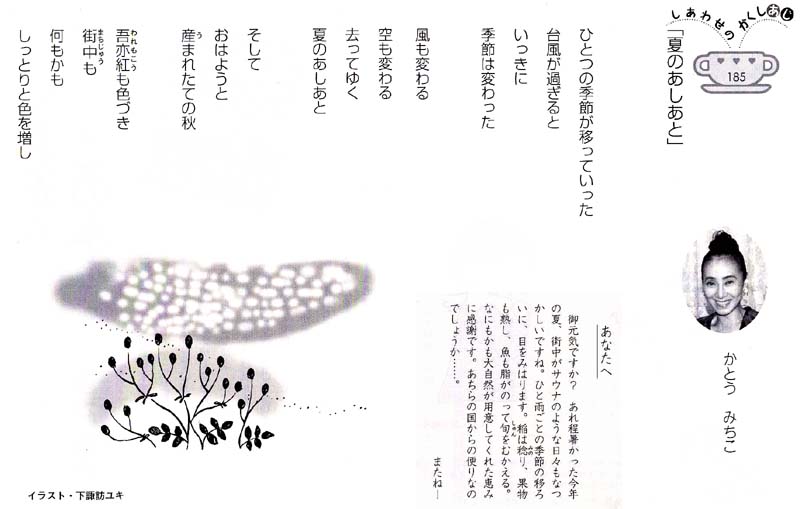 しあわせのかくしあじ
185
「夏のあしあと」
かとう みちこ
ひとつの季節が移っていった
台風が過ぎると
いっきに
季節は変わった
風も変わる
空も変わる
去ってゆく
夏のあしあと
そして
おはようと
産まれたての秋
吾亦紅も色づき
街中も
何もかも
しっとりと色を増し
あなたへ
御元気ですか? あれ程暑かった今年
の夏、街中がサウナのような日々もなつ
かしいですね。ひと雨ごとの季節の移ろ
いに、目をみはります。稲は稔り、果物
も熟し、魚も脂がのって旬をむかえる。
なにもかも大自然が用意してくれた恵み
に感謝です。あちらの国からの便りなの
でしょうか……。
またね—
イラスト・下諏訪ユキ